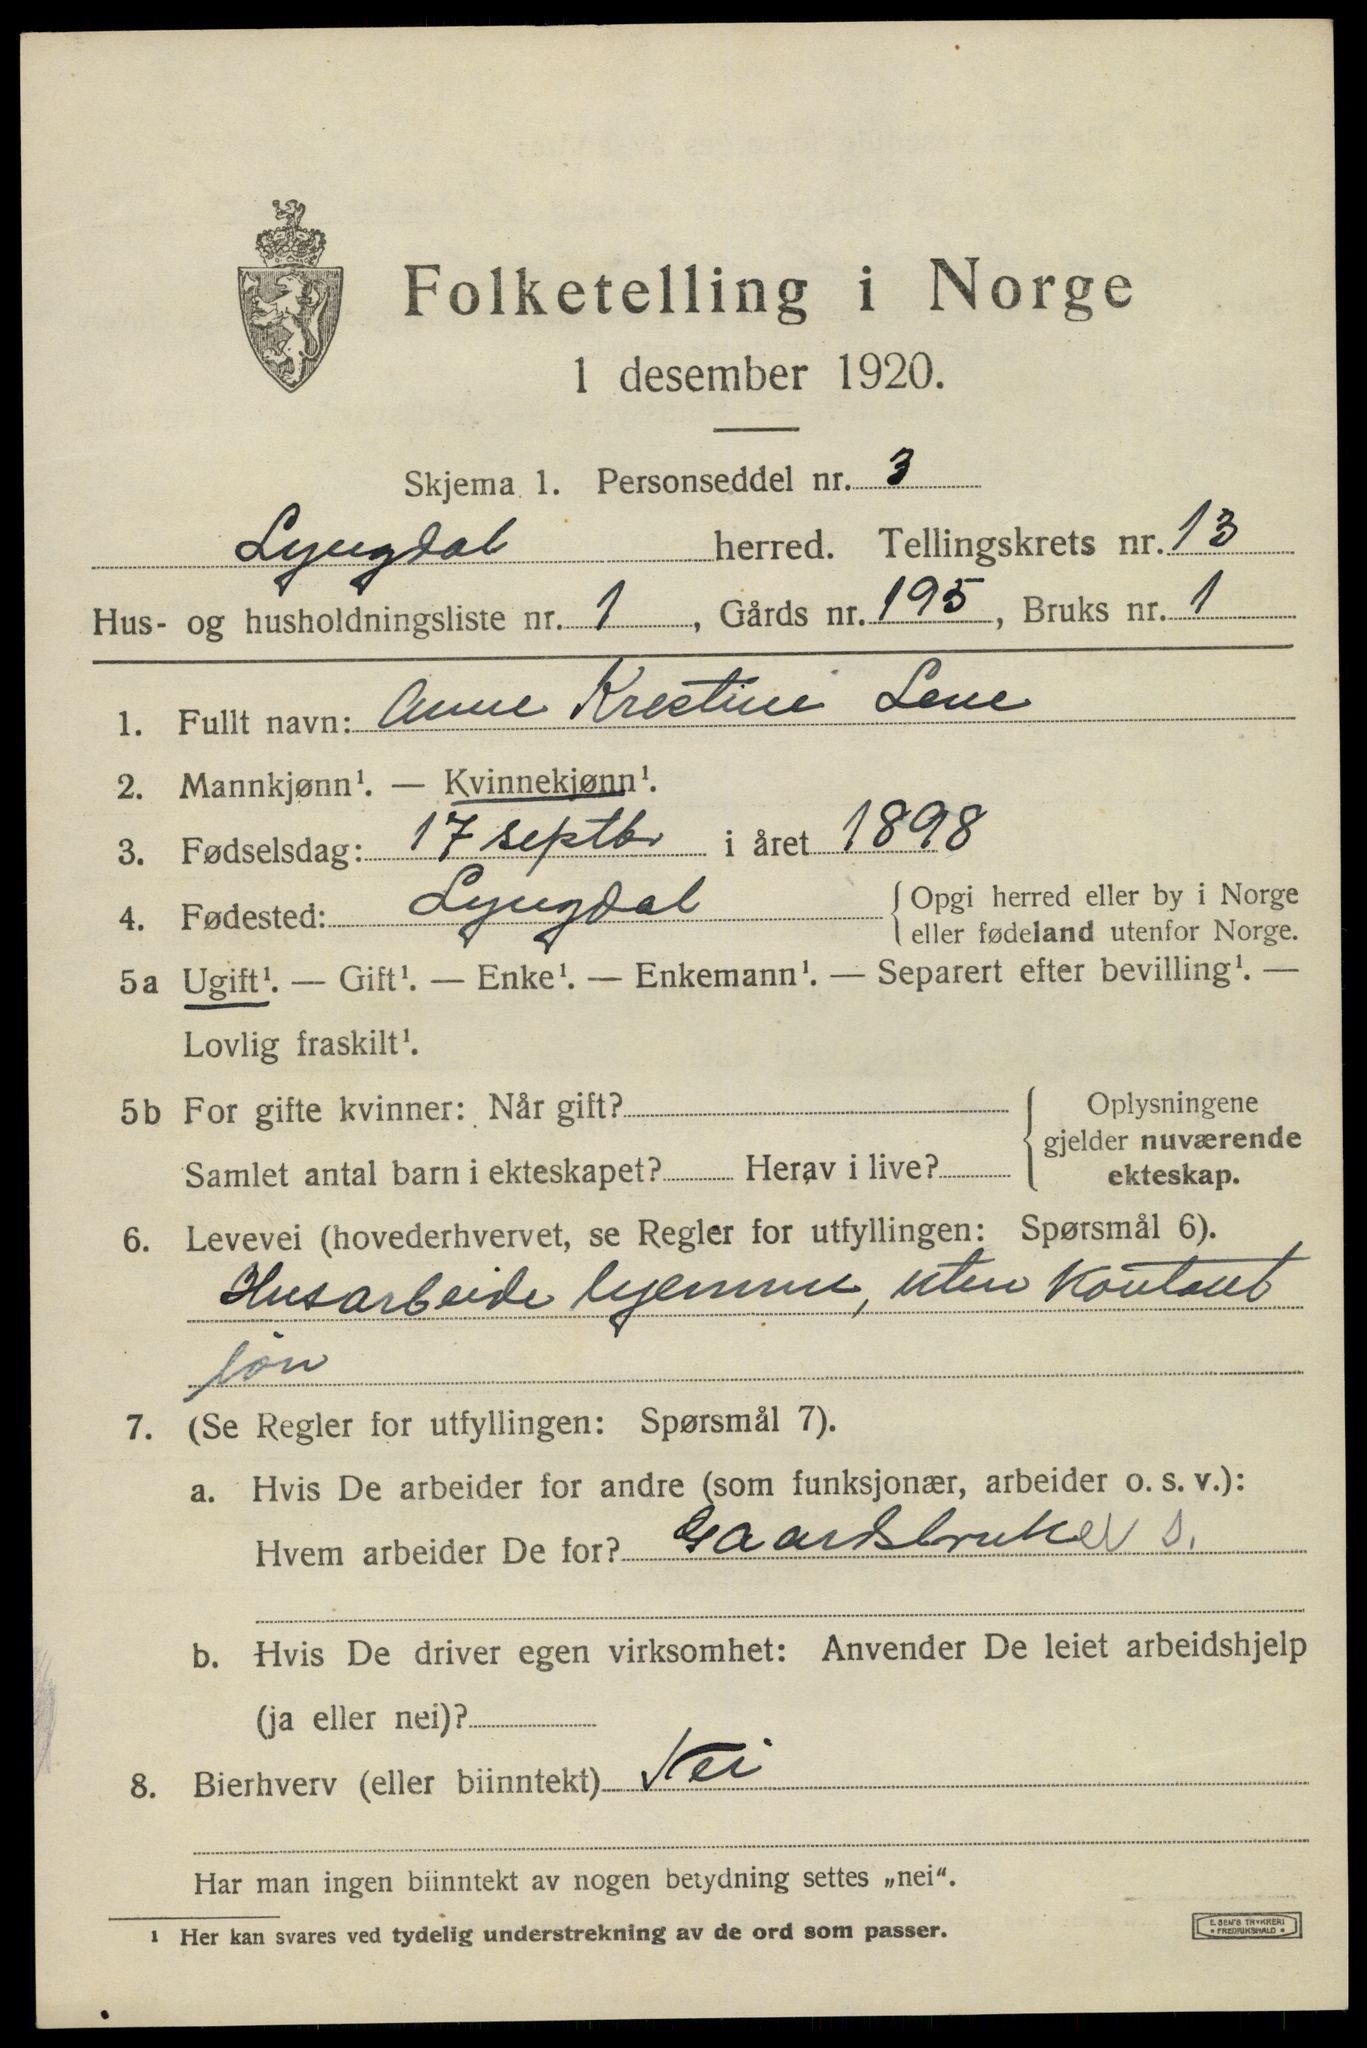 Folketelling i Norge
1 desember 1920.
Skjema 1. Personseddel nr. 3
Lyngdal herred. Tellingskrets nr. 13
Hus- og husholdningsliste nr. 1, Gårds nr. 195, Bruks nr. 1
1. Fullt navn: Anne Krestine Lene
2. Mannkjønn¹. — Kvinnekjønn¹.
3. Fødselsdag: 17 septbr i året 1898
4. Fødested: Lyngdal { Opgi herred eller by i Norge
eller fødeland utenfor Norge.
5a Ugift¹. — Gift¹. — Enke¹. — Enkemann¹. — Separert efter bevilling¹. —
Lovlig fraskilt¹.
5b For gifte kvinner: Når gift? { Oplysningene
gjelder nuværende
Samlet antal barn i ekteskapet? Herav i live? ekteskap.
6. Levevei (hovederhvervet, se Regler for utfyllingen: Spørsmål 6).
Husarbeide hjemme, uten kontant
løn
7. (Se Regler for utfyllingen: Spørsmål 7).
a. Hvis De arbeider for andre (som funksjonær, arbeider o. s. v.):
Hvem arbeider De for? Gaardsbruker
b. Hvis De driver egen virksomhet: Anvender De leiet arbeidshjelp
(ja eller nei)?
8. Bierhverv (eller biinntekt) Nei
Har man ingen biinntekt av nogen betydning settes „nei“.
¹ Her kan svares ved tydelig understrekning av de ord som passer.
E. SEM'S TRYKKERI
* FREDRIKSHALD *